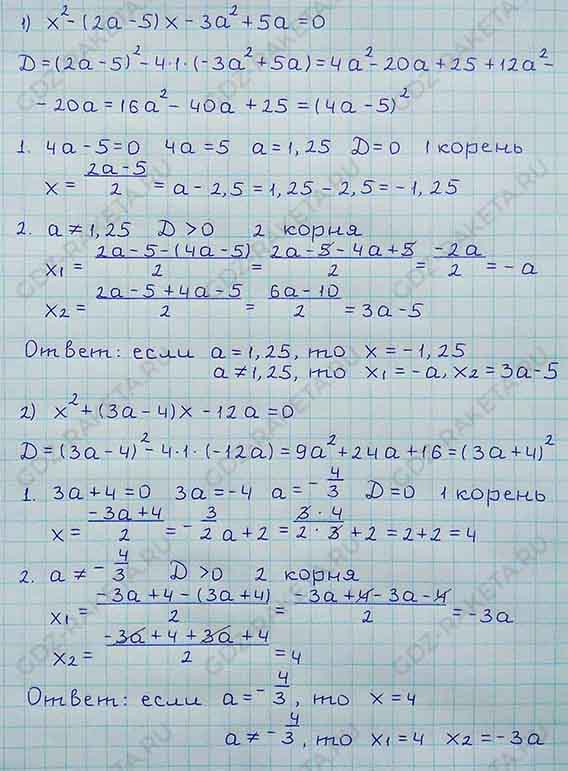 1) x² - (2a - 5)x - 3a² + 5a = 0
D = (2a - 5)² - 4·1·(-3a² + 5a) = 4a² - 20a + 25 + 12a² -
- 20a = 16a² - 40a + 25 = (4a - 5)²
1. 4a - 5 = 0 4a = 5 a = 1,25 D = 0 1 корень
x = (2a - 5)/2 = a - 2,5 = 1,25 - 2,5 = -1,25
2. a ≠ 1,25 D > 0 2 корня
x₁ = (2a - 5 - (4a - 5))/2 = (2a - 5 - 4a + 5)/2 = (-2a)/2 = -a
x₂ = (2a - 5 + 4a - 5)/2 = (6a - 10)/2 = 3a - 5
Ответ: если a = 1,25, то x = -1,25
a ≠ 1,25, то x₁ = -a, x₂ = 3a - 5
2) x² + (3a - 4)x - 12a = 0
D = (3a - 4)² - 4·1·(-12a) = 9a² + 24a + 16 = (3a + 4)²
1. 3a + 4 = 0 3a = -4 a = -4/3 D = 0 1 корень
x = (-3a + 4)/2 = -3/2 a + 2 = (3·4)/(2·3) + 2 = 2 + 2 = 4
2. a ≠ -4/3 D > 0 2 корня
x₁ = (-3a + 4 - (3a + 4))/2 = (-3a + 4 - 3a - 4)/2 = -3a
x₂ = (-3a + 4 + 3a + 4)/2 = 4
Ответ: если a = -4/3, то x = 4
a ≠ -4/3, то x₁ = 4 x₂ = -3a
GDZ-RAKETA.RU